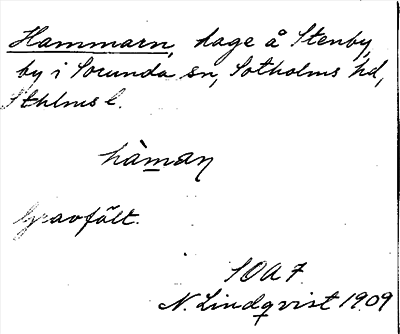 Hammarn, hage å Stenby,
by i Sorunda sn, Sotholms hd,
Sthlms l.
hàman
Gravfält.
SOA 7.
N. Lindqvist 1909